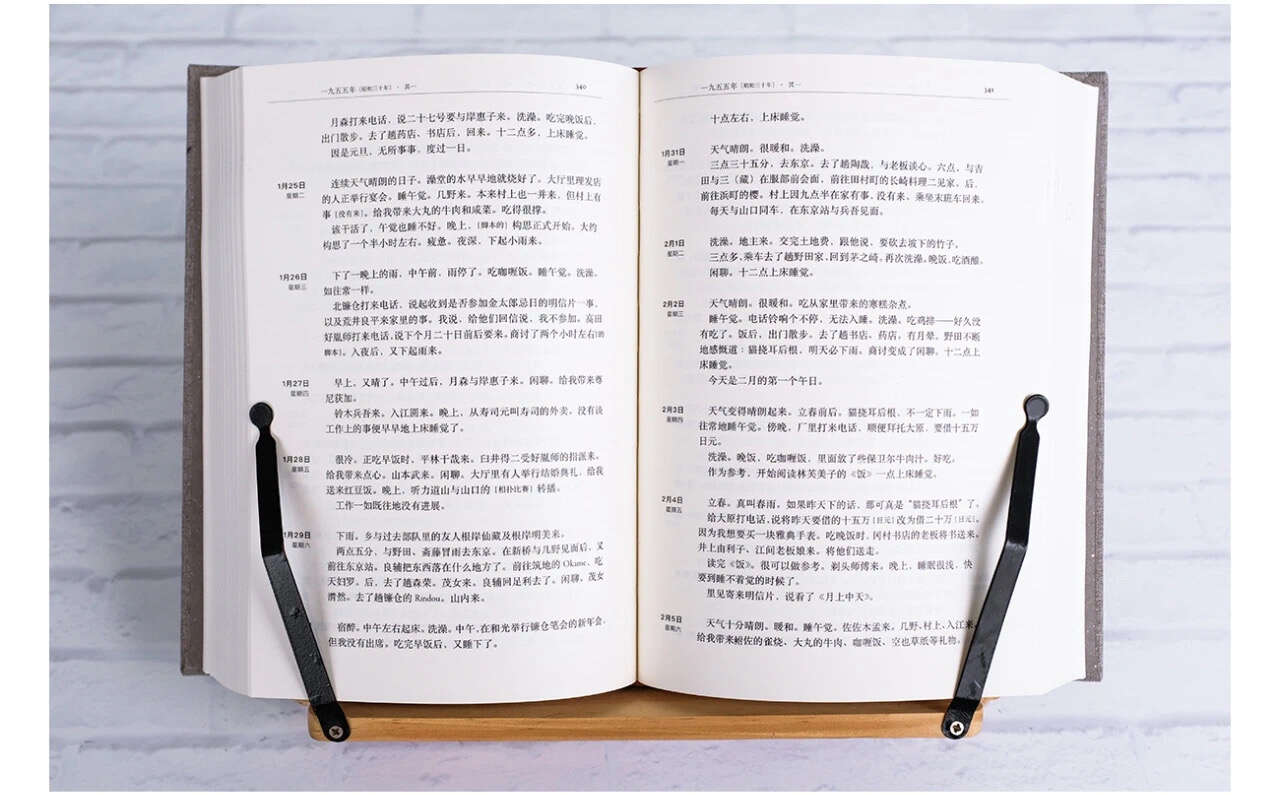 一九五五年（昭和三十年）·其一
340
月森打来电话，说二十七号要与岸惠子来。洗澡。吃完晚饭后，
出门散步。去了趟药店、书店后，回来。十二点多，上床睡觉。
因是元旦，无所事事，度过一日。
1月25日
星期二
连续天气晴朗的日子。澡堂的水早早地就烧好了。大厅里理发店
的人正举行宴会。睡午觉。几野来。本来村上也一并来，但村上有
事［没有来］。给我带来大丸的牛肉和咸菜。吃得很撑。
该干活了，午觉也睡不好。晚上，［脚本的］构思正式开始，大约
构思了一个半小时左右。疲惫。夜深，下起小雨来。
1月26日
星期三
下了一晚上的雨，中午前，雨停了。吃咖喱饭。睡午觉。洗澡，
如往常一样。
北镰仓打来电话，说起收到是否参加金太郎忌日的明信片一事，
以及荒井良平来家里的事。我说，给他们回信说，我不参加。高田
好胤师打来电话，说下个月二十日前后要来。商讨了两个小时左右［脚
脚本］。入夜后，又下起雨来。
1月27日
星期四
早上，又晴了。中午过后，月森与岸惠子来。闲聊。给我带来尊
尼获加。
铃木兵吾来。入江圆来。晚上，从寿司元叫寿司的外卖，没有谈
工作上的事便早早地上床睡觉了。
1月28日
星期五
很冷。正吃早饭时，平林干哉来。臼井得二受好胤师的指派来。
给我带来点心。山本武来。闲聊。大厅里有人举行结婚典礼，给我
送来红豆饭。晚上，听力道山与山口的［相扑比赛］转播。
工作一如既往地没有进展。
1月29日
星期六
下雨。乡与过去部队里的友人根岸仙藏及根岸明美来。
两点五分，与野田、斋藤冒雨去东京。在新桥与几野见面后，又
前往东京站。良辅把东西落在什么地方了。前往筑地的 Okame，吃
天妇罗。后，去了趟森荣。茂女来。良辅回足利去了。闲聊，茂女
潸然。去了趟镰仓的 Rindou。山内来。
宿醉。中午左右起床。洗澡。中午，在和光举行镰仓笔会的新年会，
但我没有出席。吃完早饭后，又睡下了。
一九五五年（昭和三十年）·其一
341
十点左右，上床睡觉。
1月31日
星期一
天气晴朗。很暖和。洗澡。
三点三十五分，去东京。去了趟陶哉，与老板谈心。六点，与吉
田与三（藏）在服部前会面，前往田村町的长崎料理二见家，后，
前往浜町的樱。村上因九点半在家有事，没有来，乘坐末班车回来。
每天与山口同车，在东京站与兵吾见面。
2月1日
星期二
洗澡。地主来。交完土地费，跟他说，要砍去坡下的竹子。
三点多，乘车去了趟野田家，回到茅之崎。再次洗澡。晚饭，吃酒酿。
闲聊。十二点上床睡觉。
2月2日
星期三
天气晴朗。很暖和。吃从家里带来的寒糕杂煮。
睡午觉。电话铃响个不停，无法入睡。洗澡。吃鸡排——好久没
有吃了。饭后，出门散步。去了趟书店、药店，有月晕，野田不断
地感慨道：猫挠耳后根，明天必下雨。商讨变成了闲聊，十二点上
床睡觉。
今天是二月的第一个午日。
2月3日
星期四
天气变得晴朗起来。立春前后。猫挠耳后根，不一定下雨。一如
往常地睡午觉。傍晚，厂里打来电话，顺便拜托大原，要借十五万
日元。
洗澡。晚饭，吃咖喱饭，里面放了些保卫尔牛肉汁。好吃。
作为参考，开始阅读林芙美子的《饭》一点上床睡觉。
2月4日
星期五
立春。真叫春雨，如果昨天下的话，那可真是“猫挠耳后根”了。
给大原打电话，说将昨天要借的十五万［日元］改为借二十万［日元］，
因为我想要买一块雅典手表。吃晚饭时，冈村书店的老板将书送来。
井上由利子、江间老板娘来。将他们送走。
读完《饭》。很可以做参考。剃头师傅来。晚上，睡眠很浅，快
要到睡不着觉的时候了。
里见寄来明信片，说看了《月上中天》。
2月5日
星期六
天气十分晴朗。暖和。睡午觉，佐佐木孟来。几野、村上、入江来。
给我带来鲍佐的雀烧、大丸的牛肉、咖喱饭、空也草纸等礼物。